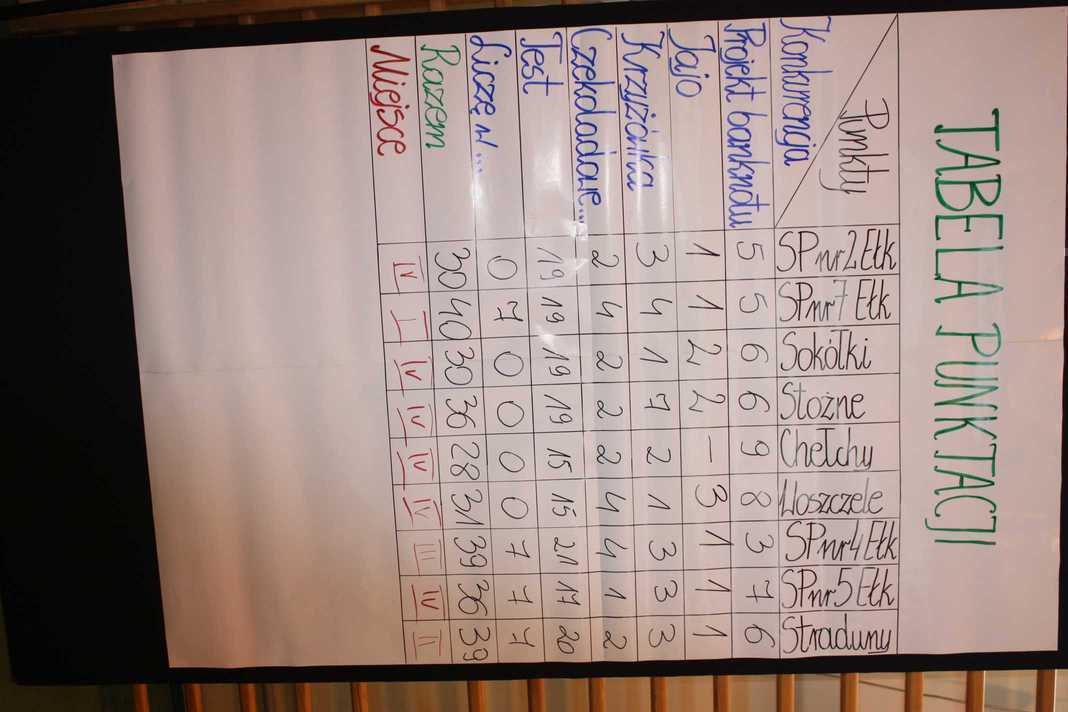 TABELA PUNKTACJI
Punkty
Konkurencja SP nr 2 Ełk SP nr 7 Ełk Sokółki Stożne Chełchy Woszczele SP nr 4 Ełk SP nr 5 Ełk Straduny
Projekt banknotu 5 5 6 6 9 8 3 7 6
Jajo 1 1 2 2 - 3 1 1 1
Krzyżówka 3 4 1 7 2 1 3 3 3
Czekoladowe... 2 4 2 2 2 4 4 1 2
Test 19 19 19 19 15 15 21 17 20
Liczę w ... 0 7 0 0 0 0 7 7 7
Razem 30 40 30 36 28 31 39 36 39
Miejsce IV I IV IV IV IV III IV II